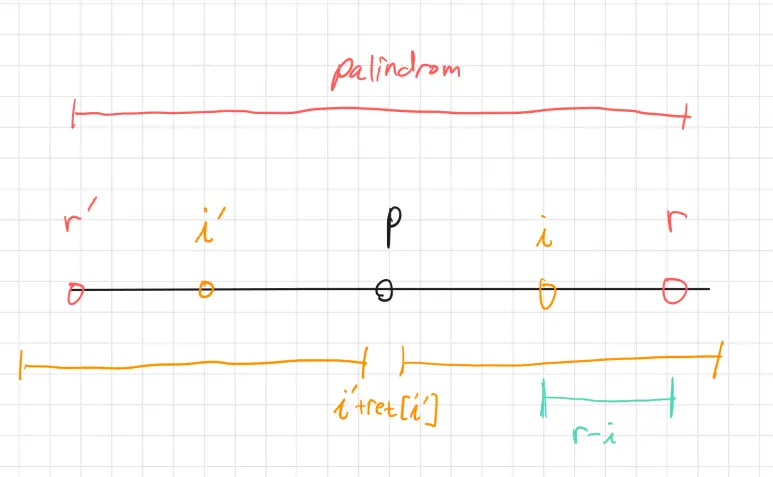 palindrom
r′ i′ p i r
i′+ret[i′]
r-i